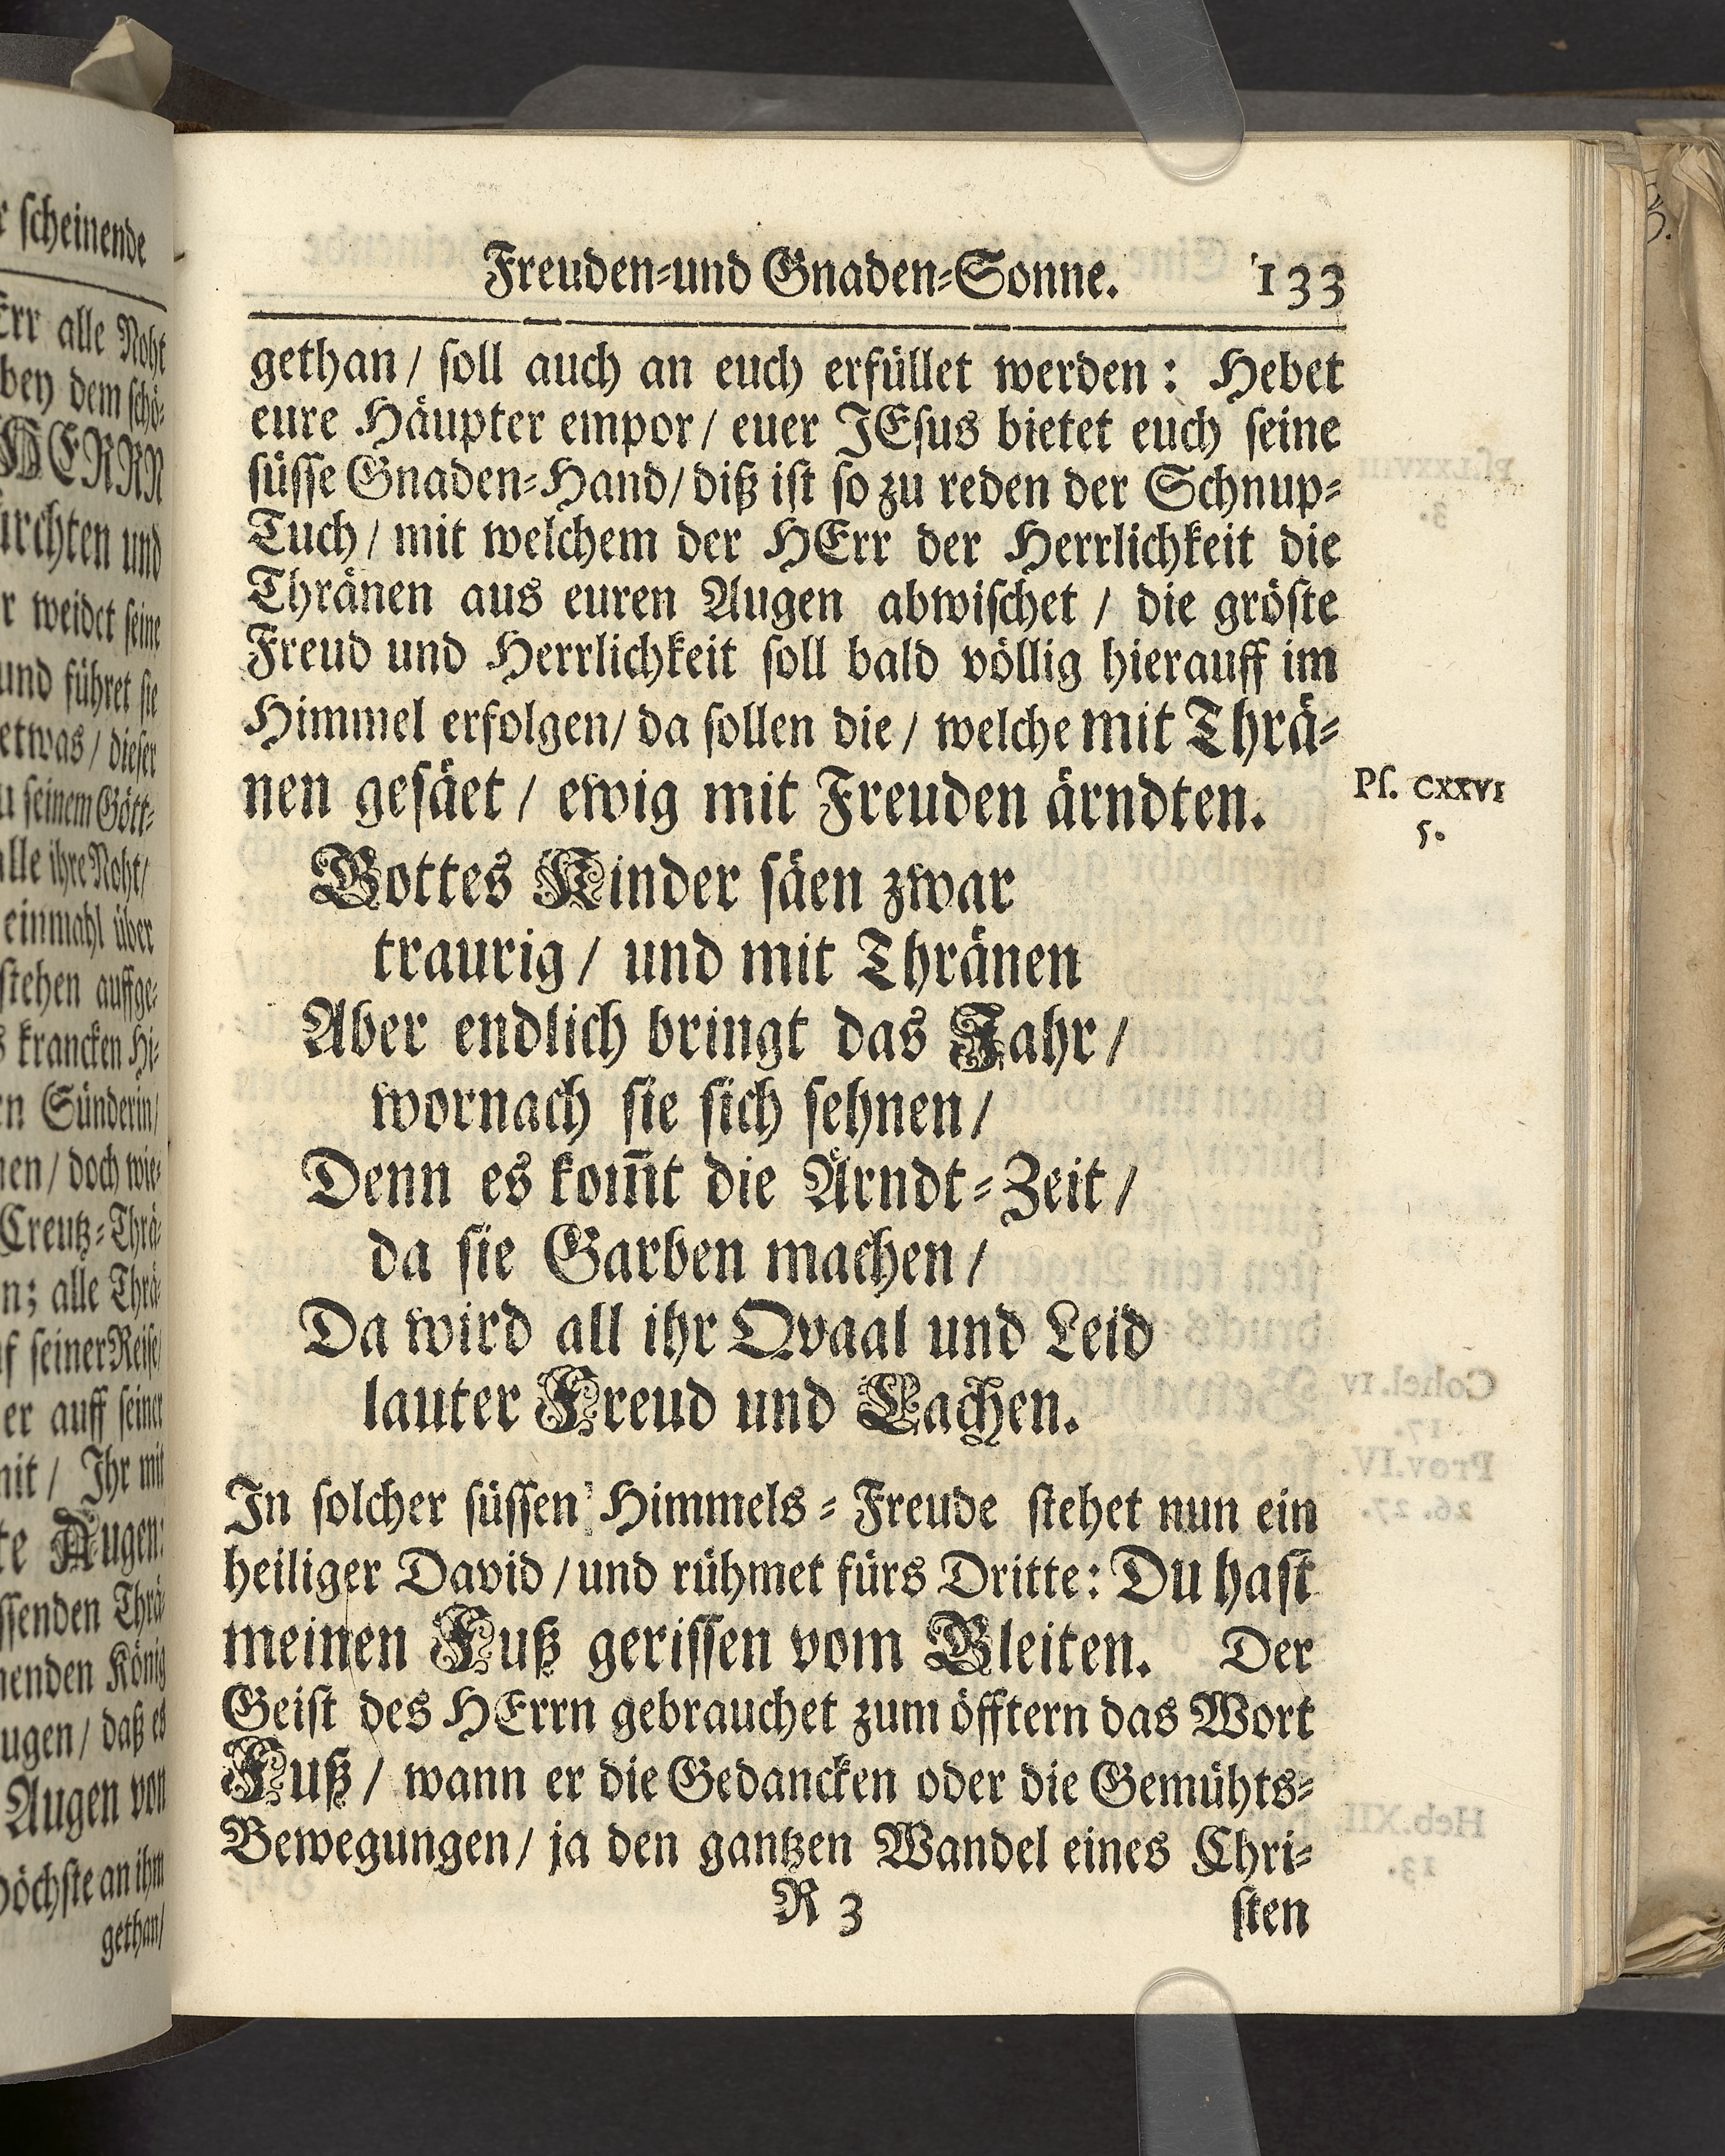 Freuden-und Gnaden-Sonne. 133
gethan / soll auch an euch erfüllet werden: Hebet
eure Häupter empor / euer JEsus bietet euch seine
süsse Gnaden-Hand / diß ist so zu reden der Schnup-
Tuch / mit welchem der HErr der Herrlichkeit die
Thränen aus euren Augen abwischet / die gröste
Freud und Herrlichkeit soll bald völlig hierauff im
Himmel erfolgen / da sollen die / welche mit Thrä-
nen gesäet / ewig mit Freuden ärndten.
Ps. CXXVI
5.
Gottes Kinder säen zwar
traurig / und mit Thränen
Aber endlich bringt das Jahr /
wornach sie sich sehnen /
Denn es kom̅t die Ärndt-Zeit /
da sie Garben machen /
Da wird all ihr Qvaal und Leid
lauter Freud und Lachen.
In solcher süssen Himmels-Freude stehet nun ein
heiliger David / und rühmet fürs Dritte: Du hast
meinen Fuß gerissen vom Gleiten. Der
Geist des HErrn gebrauchet zum öfftern das Wort
Fuß / wann er die Gedancken oder die Gemühts-
Bewegungen / ja den gantzen Wandel eines Chri-
R 3 sten